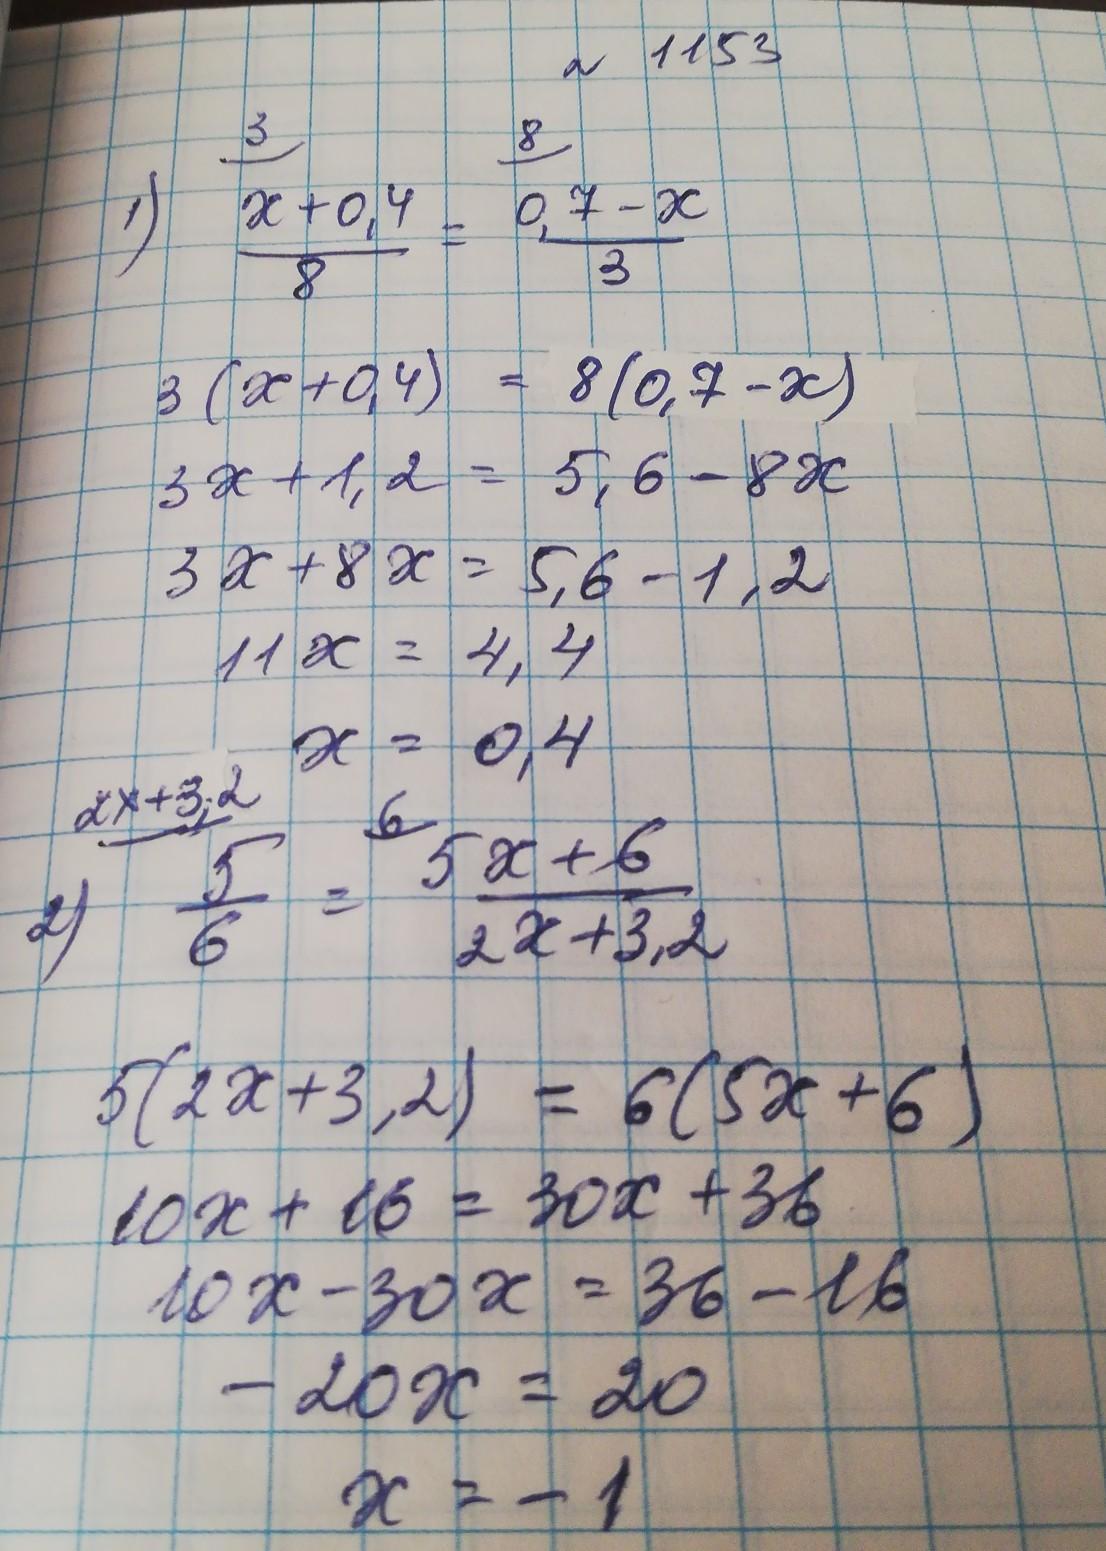 № 1153
3 8
1) x+0,4 / 8 = 0,7-x / 3
3(x+0,4) = 8(0,7-x)
3x+1,2 = 5,6-8x
3x+8x = 5,6-1,2
11x = 4,4
x = 0,4
2x+3,2 6
2) 5 / 6 = 5x+6 / 2x+3,2
5(2x+3,2) = 6(5x+6)
10x+16 = 30x+36
10x-30x = 36-16
-20x = 20
x = -1